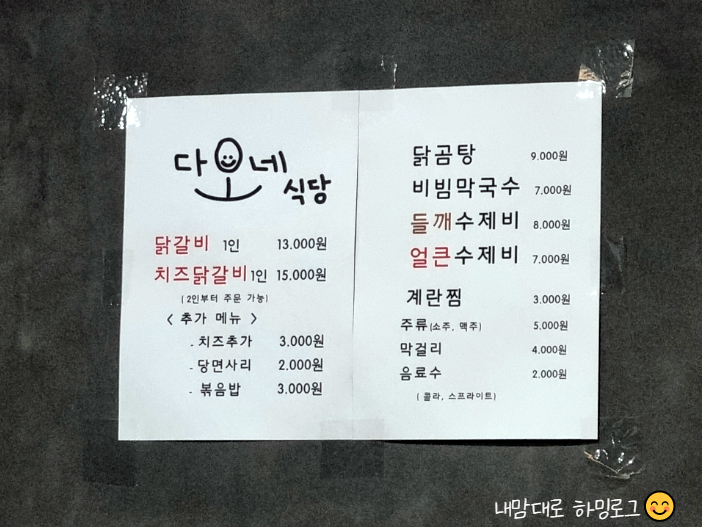 다오네
식당
닭갈비 1인 13.000원
치즈닭갈비 1인 15.000원
(2인부터 주문 가능)
< 추가 메뉴 >
. 치즈추가 3.000원
- 당면사리 2.000원
- 볶음밥 3.000원
닭곰탕 9.000원
비빔막국수 7.000원
들깨수제비 8.000원
얼큰수제비 7.000원
계란찜 3.000원
주류(소주, 맥주) 5.000원
막걸리 4.000원
음료수 2.000원
(콜라, 스프라이트)
내맘대로 하밍로그